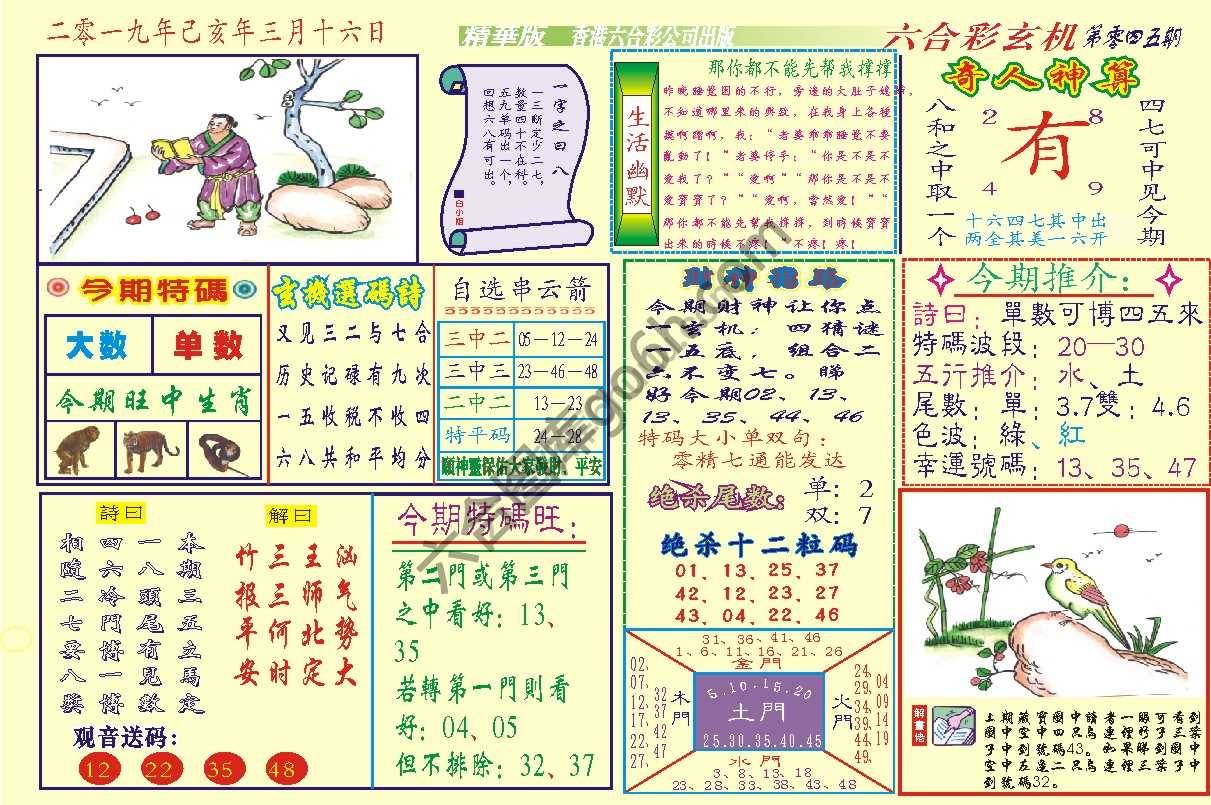 二零一九年己亥年三月十六日
精華版 香港六合彩公司出版
六合彩玄机 第零四五期
一字之曰八
一三断定少二七，
数量四十不在料。
五九单码出一个，
回想六八有可出。
白小姐
生活幽默
那你都不能先帮我撑撑
昨晚睡覺困的不行，旁邊的大肚子媳婦，
不知道哪里来的興致，在我身上各種
摸啊蹭啊，我：“老婆乖乖睡覺不要
亂動了！“老婆停手：“你是不是不
爱我了？““爱啊““那你是不是不
爱寶寶了？““爱啊，當然爱！““
那你都不能先幫我撑撑，到時候寶寶
出来的時候不疼！不疼！疼！
奇人神算
四七可中见今期
八和之中取一个
2 8
有
4 9
十六四七其中出
两全其美一六开
今期特碼
大数 单数
今期旺中生肖
玄機選碼詩
又见三二与七合
历史记碌有九次
一五收税不收四
六八共和平均分
自选串云箭
三中二 05－12－24
三中三 23－46－48
二中二 13－23
特平码 24－28
願神靈保佑大家發財、平安
今期财神让你点
一玄机：四猜谜
一五底，组合二
六不变七。睇
好今期02、13、
13、35、44、46
特码大小单双句：
零精七通能发达
绝杀尾数： 单：2
双：7
绝杀十二粒码
01、13、25、37
42、12、23、27
43、04、22、46
今期推介：
詩曰：單數可博四五來
特碼波段：20—30
五行推介：水、土
尾數：單：3.7雙：4.6
色波：綠、紅
幸運號碼：13、35、47
詩曰
本期三五立馬定
一八頭尾有見數
四六冷門博一博
相隨二七要八獎
解曰
汹气势大
王师北定
三三何时
竹报平安
观音送码：
12 22 35 48
今期特碼旺：
第二門或第三門
之中看好：13、
35
若轉第一門則看
好：04、05
但不排除：32、37
31、36、41、46
1、6、11、16、21、26
金門
02、07、12、17、22、27、
32、37、42、47
木門
5.10.15.20
土門
25.30.35.40.45
火門
24、29、34、39、44、49、
04、09、14、19
水門
3、8、13、18
23、28、33、38、43、48
解畫悟
上期藏寶圖中讀者一眼可看到
圖中空中四只鳥連裡竹子三葉
子中到號碼43。如果睇到圖中
空中左邊二只鳥連裡三葉子中
到號碼32。
六合图库go6h.com